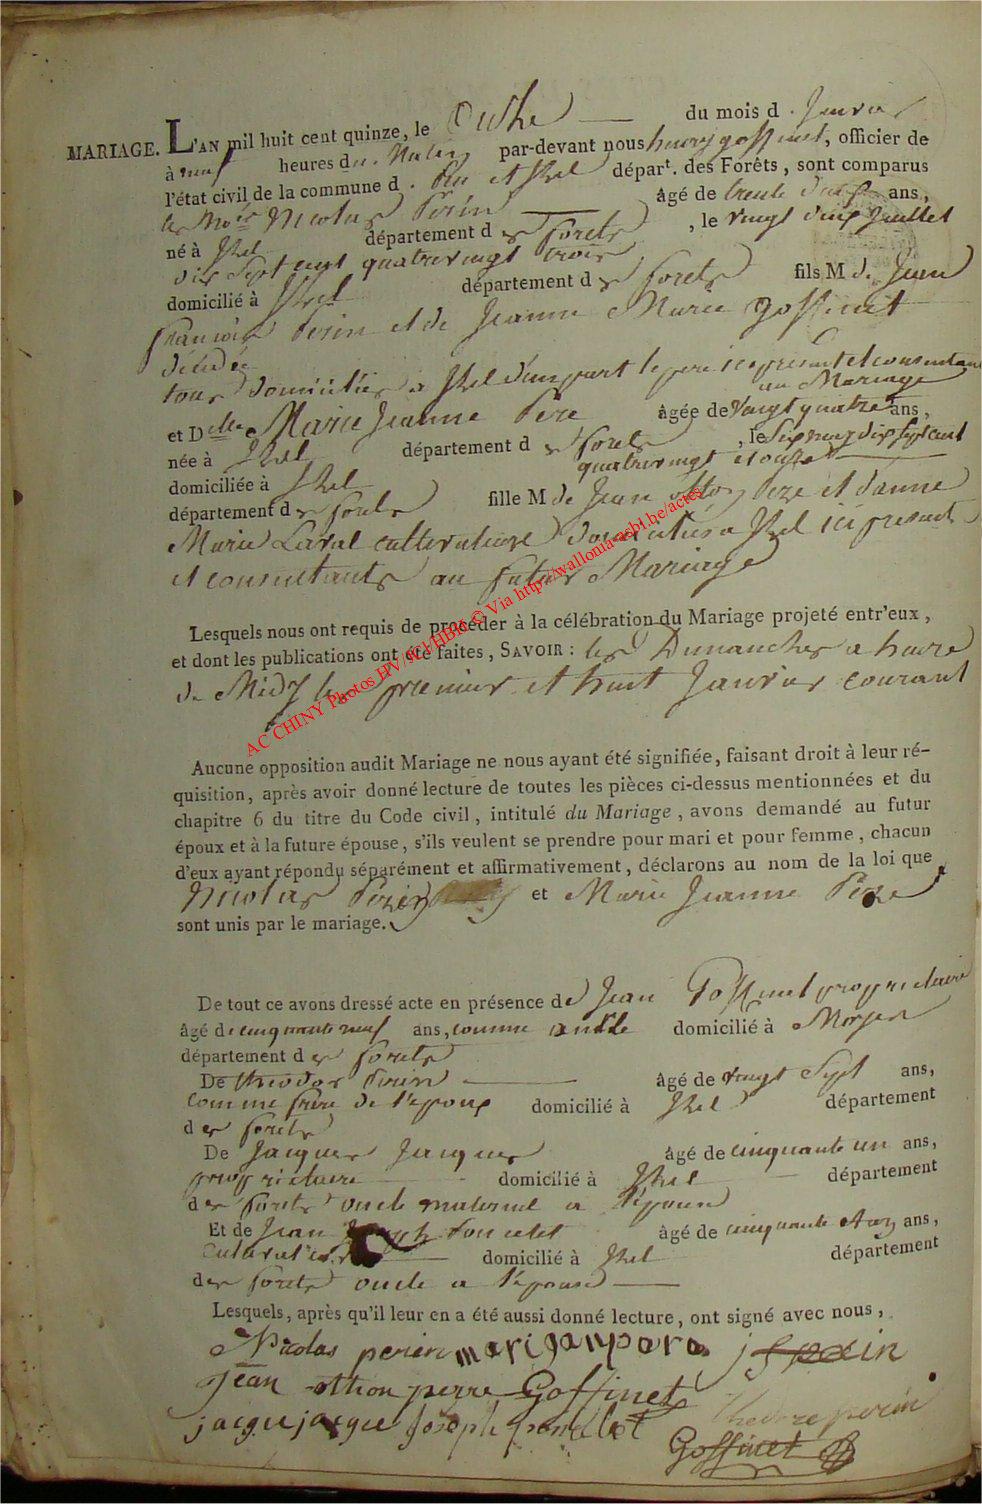 MARIAGE. L'AN mil huit cent quinze, le Onshe du mois d. Janvier
à neuf heures du Matin par-devant nous henry goffinet, officier de
l'état civil de la commune d. et Jzel départ. des Forêts, sont comparus
Nicolas Perin âgé de trente deux ans,
né à Jzel département des forets, le vingt deux Juillet
dix Sept cent quatrevingt trois
domicilié à Jzel département des forets fils M de Jean
francois Perin et de Jeanne Marie goffinet
décédée
tous domiciliés a Jzel d'une part le pere ici present et consentant
au Mariage
et Dlle Marie Jeanne Pere âgée de Vingt quatre ans,
née à Jzel département des forets, le Six may dix Sept cent
quatrevingt et onze
domiciliée à Jzel
département des forets fille M de Jean otton Peze et d'anne
Marie Laval cultivateurs domiciliés a Jzel ici present
et consentants au futur Mariage
Lesquels nous ont requis de procéder à la célébration du Mariage projeté entr'eux,
et dont les publications ont été faites, SAVOIR : les Dimanches a heure
de Midy les premier et huit Janvier courant
AC CHINY Photos HV/RH/HBH © Via http://wallonia-asbl.be/actes
Aucune opposition audit Mariage ne nous ayant été signifiée, faisant droit à leur ré-
quisition, après avoir donné lecture de toutes les pièces ci-dessus mentionnées et du
chapitre 6 du titre du Code civil, intitulé du Mariage, avons demandé au futur
époux et à la future épouse, s'ils veulent se prendre pour mari et pour femme, chacun
d'eux ayant répondu séparément et affirmativement, déclarons au nom de la loi que
Nicolas Perin et Marie Jeanne Peze
sont unis par le mariage.
De tout ce avons dressé acte en présence de Jean Goffinet proprietaire
âgé de cinquante neuf ans, comme domicilié à Moyen
département des forets
De théodor Perin âgé de vingt Sept ans,
comme frere de l'epoux domicilié à Jzel département
des forets
De Jacques Jacques âgé de cinquante un ans,
proprietaire domicilié à Jzel département
des forets oncle maternel a l'epouse
Et de Jean Poncelet âgé de cinquante ans,
cultivateur domicilié à Jzel département
des forets oncle a l'epouse
Lesquels, après qu'il leur en a été aussi donné lecture, ont signé avec nous,
Nicolas perin mariganpora j f perin
jean othon perre Goffinet
jacque jacque Joseph poncelet theodore perin
Goffinet